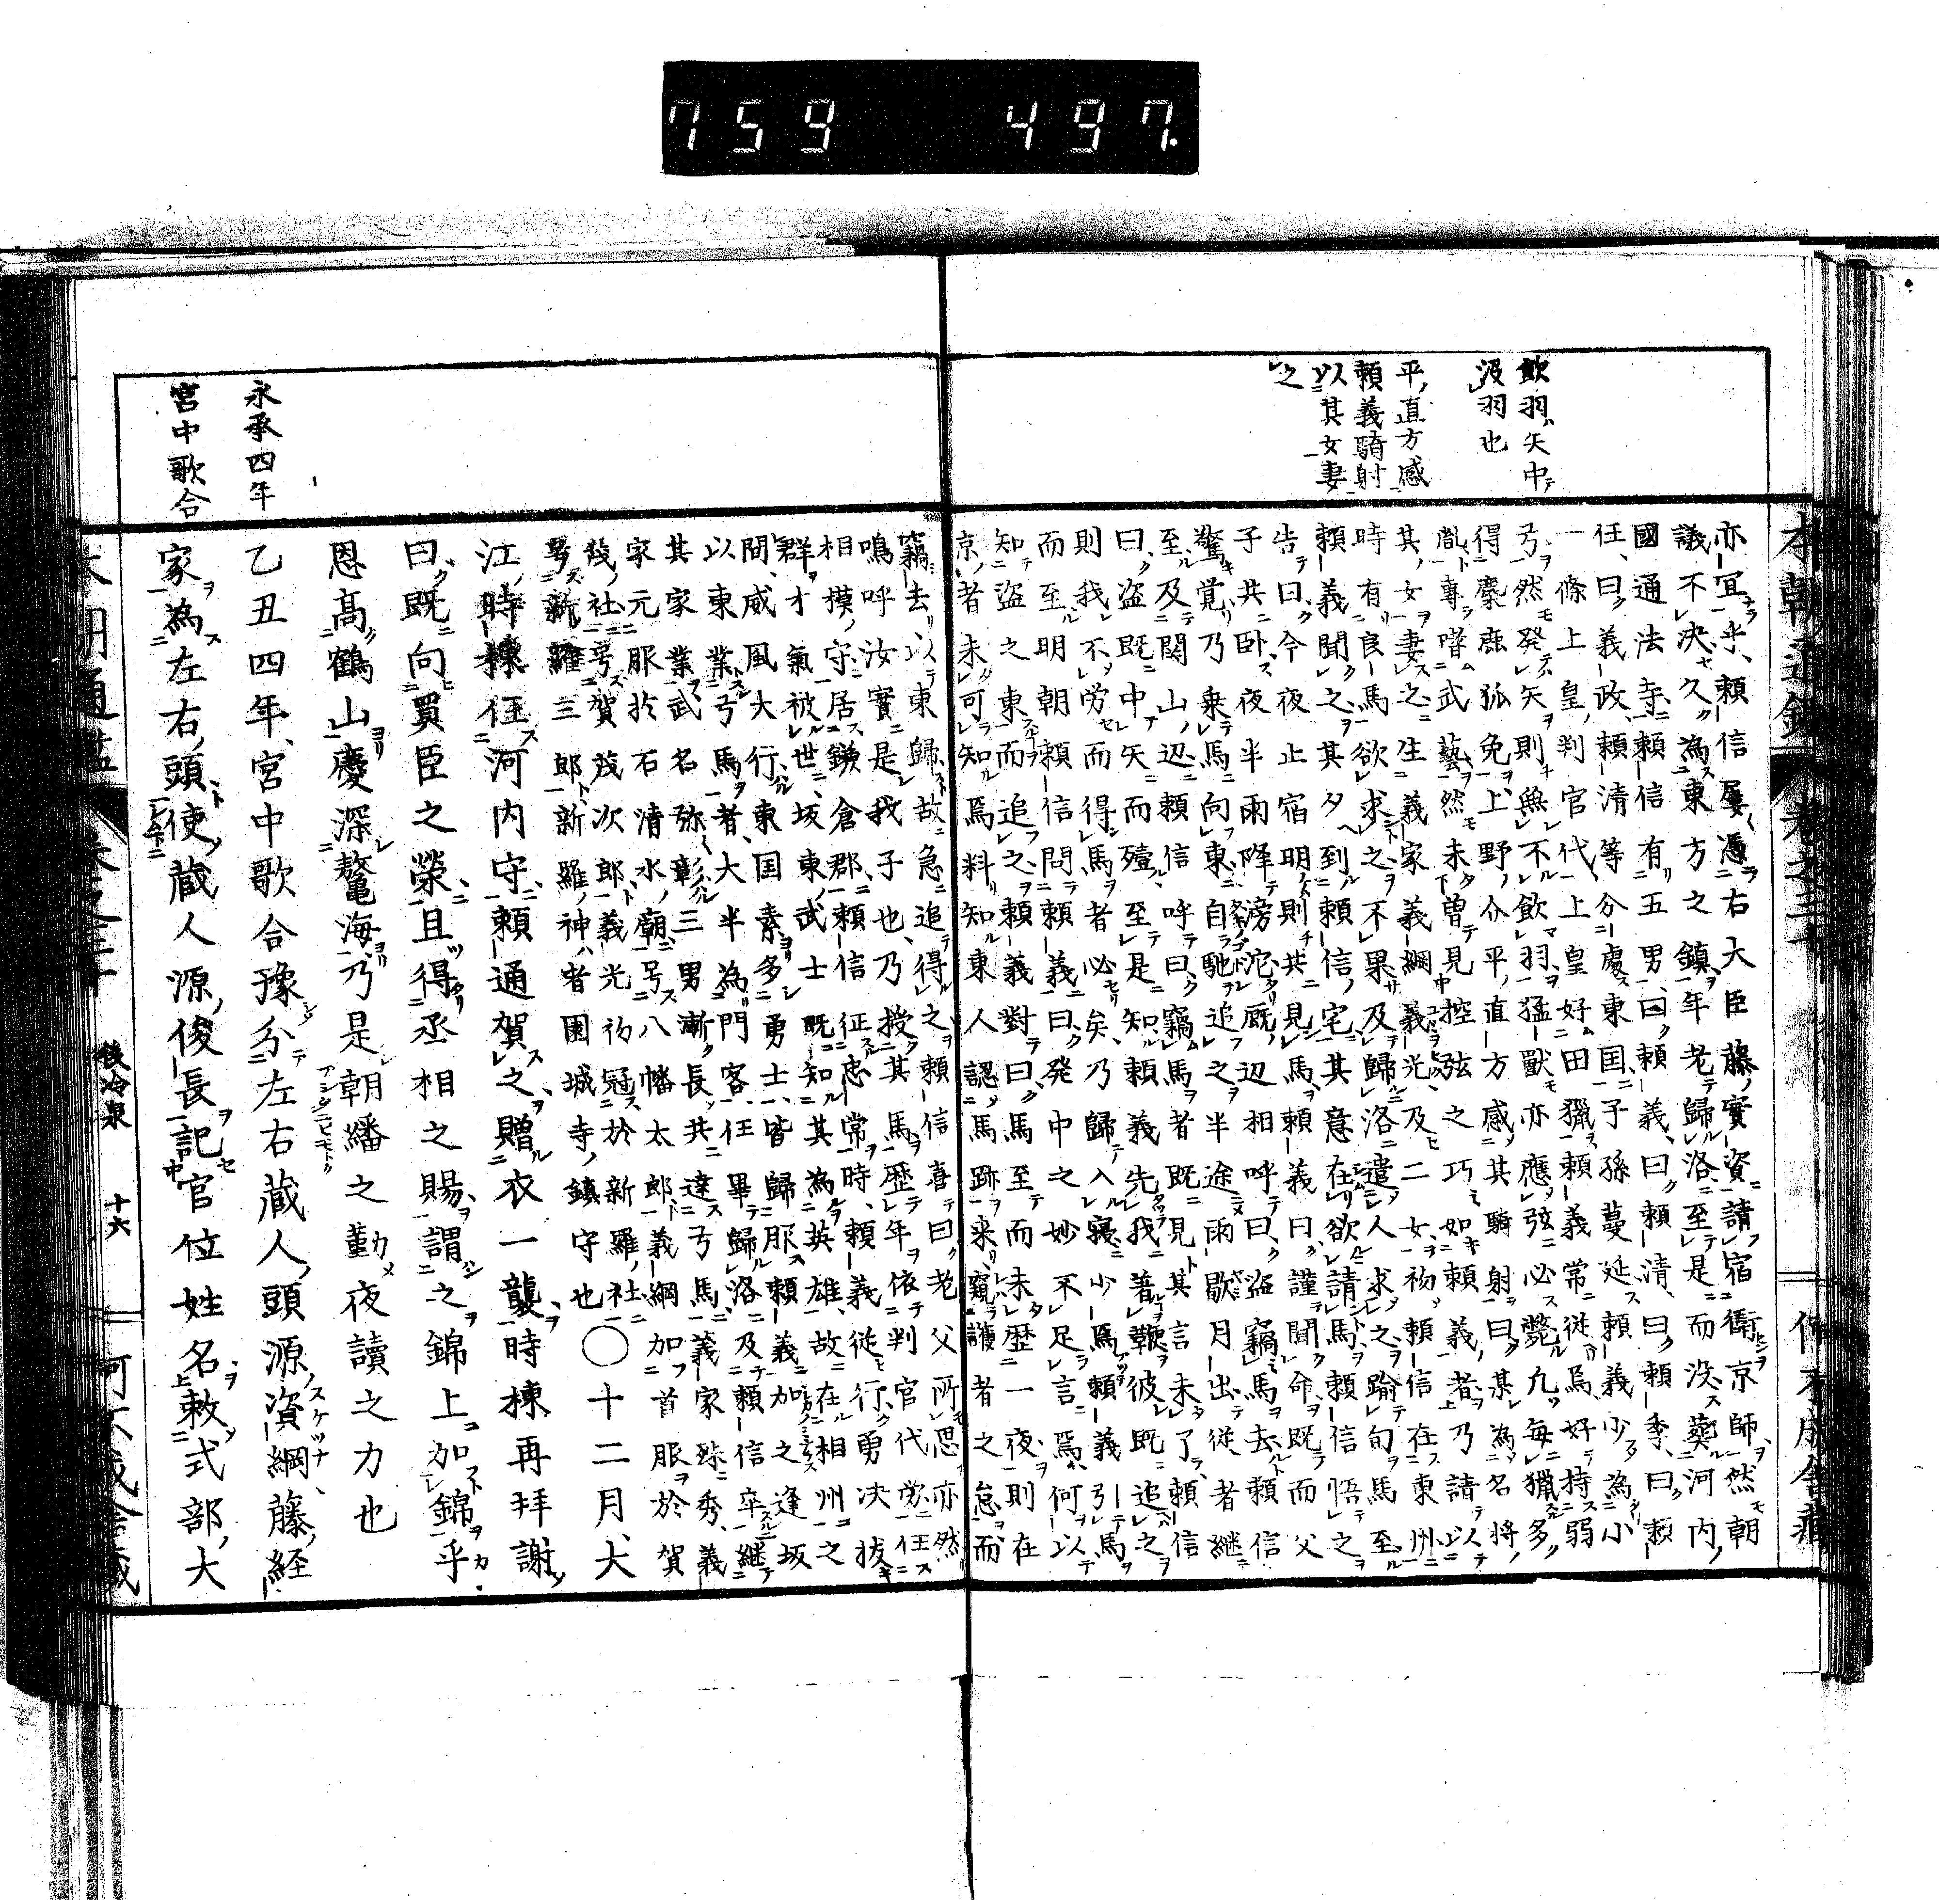 759 497.
飲羽、矢中
汲羽也
平直方感
頼義騎射
以其女妻
之
亦宜乎、頼信屢憑右大臣藤實資請宿衞京師然朝
議不決久為東方之鎮年老歸洛至是而没葬河内
國通法寺頼信有五男曰頼義曰頼清曰頼季曰頼
任、曰義政、頼清等分處東国子孫蔓延頼義少為小
一條上皇判官代上皇好田獵頼義常從焉好持弱
弓然発矢則無不飲羽猛獸亦應弦必斃九毎獵多
得麋鹿狐免上野介平直方感其騎射曰某為名将
胤專嗜武藝然未曽見控弦之巧如頼義者乃請以
其女妻之生義家義綱義光及二女初頼信在東州
時有良馬欲求之不果及歸洛遣人求之踰旬馬至
頼義聞之其夕到頼信宅其意在欲請馬頼信悟之
告曰今夜止宿明則共見馬頼義曰謹聞命既而父
子共臥夜半雨降滂沱厩辺相呼曰盗竊馬去頼信
驚覚乃乗馬向東自馳追之半途雨歇月出従者継
至及関山辺頼信呼曰竊馬者既見其言未了頼信
曰盗既中矢而殪至是知頼義先我著鞭彼既追之
則我不労而得馬者必矣乃歸入寝少焉頼義引馬
而至明朝頼信問頼義曰発中之妙不足言焉何以
知盗之東而追之頼義對曰馬至而未歴一夜則在
京者未可知焉料知東人認馬跡来窺護者之怠而
竊去以東歸故急追得之頼信喜曰老父所思亦然
鳴呼汝實是我子也乃授其馬歴年依判官代労任
相摸守居鎌倉郡頼信征忠常時頼義従行勇决抜
群才氣被世坂東武士既知其為英雄故在相州之
間威風大行東国素多勇士皆歸服頼義加之逢坂
以東業弓馬者大半為門客任畢歸洛及頼信卒継
其家業武名弥彰三男漸長共達弓馬義家殊秀義
家元服於石清水廟号八幡太郎義綱加首服於賀
茂社号賀茂次郎義光初冠於新羅社
号新羅三郎新羅神者園城寺鎮守也○十二月大
江時棟任河内守頼通賀之贈衣一襲時棟再拝謝
曰既向買臣之榮且得丞相之賜謂之錦上加錦乎
恩高鶴山慶深鼇海乃是朝繙之勤夜讀之力也
永承四年
宮中歌合
乙丑四年宮中歌合豫分左右蔵人頭源資綱藤経
家為左右頭使蔵人源俊長記官位姓名敕式部大
後冷泉 十六